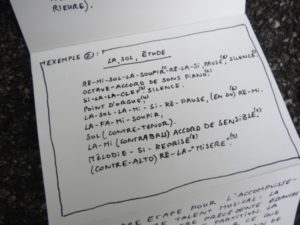 RIEURE).
EXEMPLE ②:
LA, SOL, ÉTUDE
RÉ-MI-SOL-LA-SOUPIR-RÉ-LA-SI, PAUSE, SILENCE.
OCTAVE-ACCORD DE SONS PIANO.
SI-LA-LA-CLEF SILENCE.
POINT D'ORGUE
LA-SOL-LA-MI-SI-RÉ-PAUSE, (EN DO) RÉ-MI.
LA-FA-MI-SOUPIR,
SOL (CONTRE-TENOR).
LA-MI (CONTREBASSE) ACCORD DE SENSIBLE.
MÉLODIE-SI-
(CONTRE-ALTO) RÉ-LA-"MISERE".
ÉTAPE POUR L'ACCOMPLISSE-
TALENT MUSICAL. LA
PRÉCÉDENTE
PARTITION LA
CE QUE